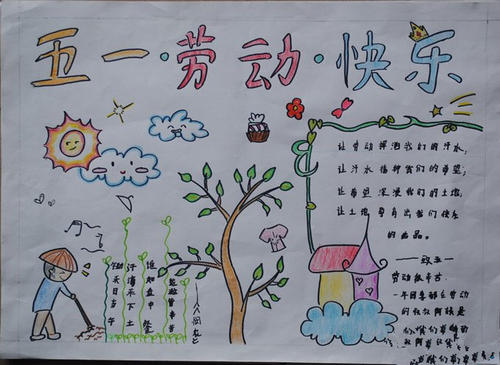 五一·劳动·快乐
让劳动挥洒我们的汗水,
让汗水播种我们的希望;
让希望滋润我们的土地,
让土地孕育出我们快乐
的
锄禾日当午
汗滴禾下土
谁知盘中餐
粒粒皆辛苦
劳动很辛苦,
一年四季都在劳动
的叔叔阿姨是